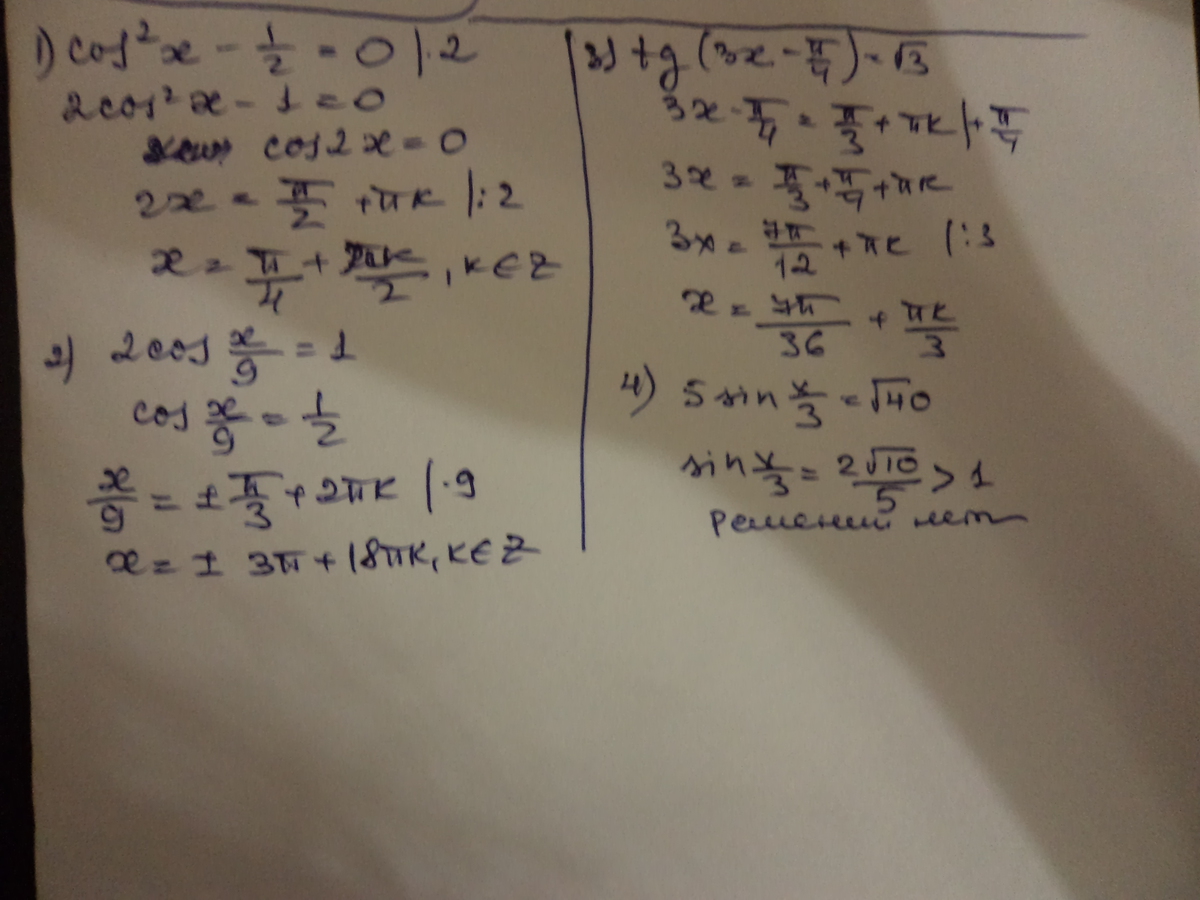 1) cos²x - 1/2 = 0 | · 2
2cos²x - 1 = 0
cos2x = 0
2x = π/2 + πk | : 2
x = π/4 + πk/2, k∈Z
2) 2cos x/9 = 1
cos x/9 = 1/2
x/9 = ± π/3 + 2πk | · 9
x = ± 3π + 18πk, k∈Z
3) tg (3x - π/4) = √3
3x - π/4 = π/3 + πk | + π/4
3x = π/3 + π/4 + πk
3x = 7π/12 + πk | : 3
x = 7π/36 + πk/3
4) 5 sin x/3 = √40
sin x/3 = 2√10/5 > 1
Решений нет